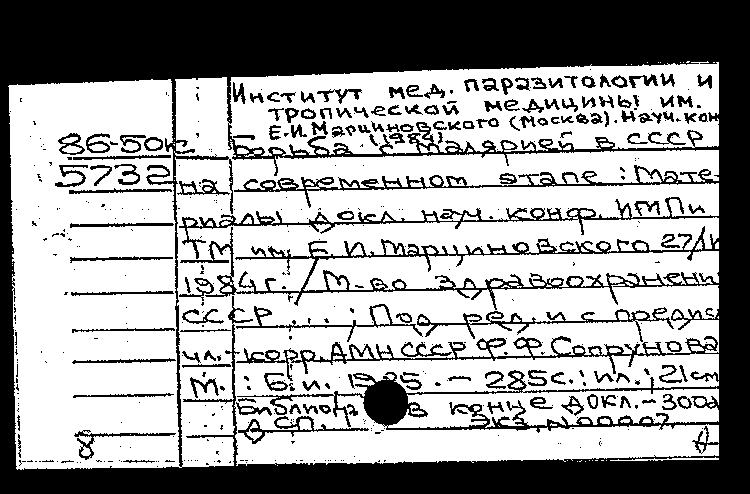 Институт мед. паразитологии и
тропической медицины им.
Е.И.Марциновского (Москва). Науч. кон
(1984)
86-50к Борьба с малярией в СССР
5732 на современном этапе : Мате-
риалы докл. науч. конф. ИМПи
ТМ им. Е.И. Марциновского 27/
1984г. / М-во здравоохранени
СССР ... ; Под ред. и с предис
чл.-корр. АМН СССР Ф.Ф. Сопрунова
М. : Б.и. 1985. - 285с. : ил. ; 21см
Библиогр в конце докл. - 300
ДСП. Экз. N 00007.
8